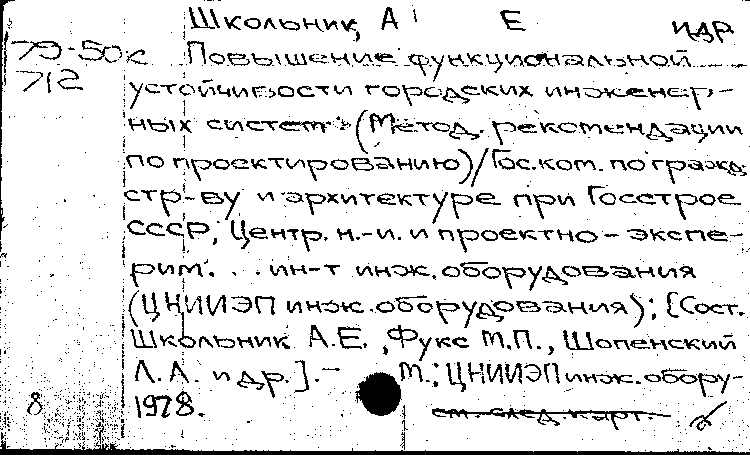 Школьник, А Е И ДР
79-50к Повышение функциональной
712 устойчивости городских инженер-
ных систем (Метод. рекомендации
по проектированию)/Гос. ком. по гражд.
стр-ву и архитектуре при Госстрое
СССР, Центр. н.-и. и проектно-экспе-
рим. . . ин-т инж. оборудования
(ЦНИИЭП инж. оборудования); [Сост.
Школьник А.Е., Фукс М.П., Шопенский
Л.А. и др.].- М.; ЦНИИЭП инж. обору-
8 1978. см. след. карт.